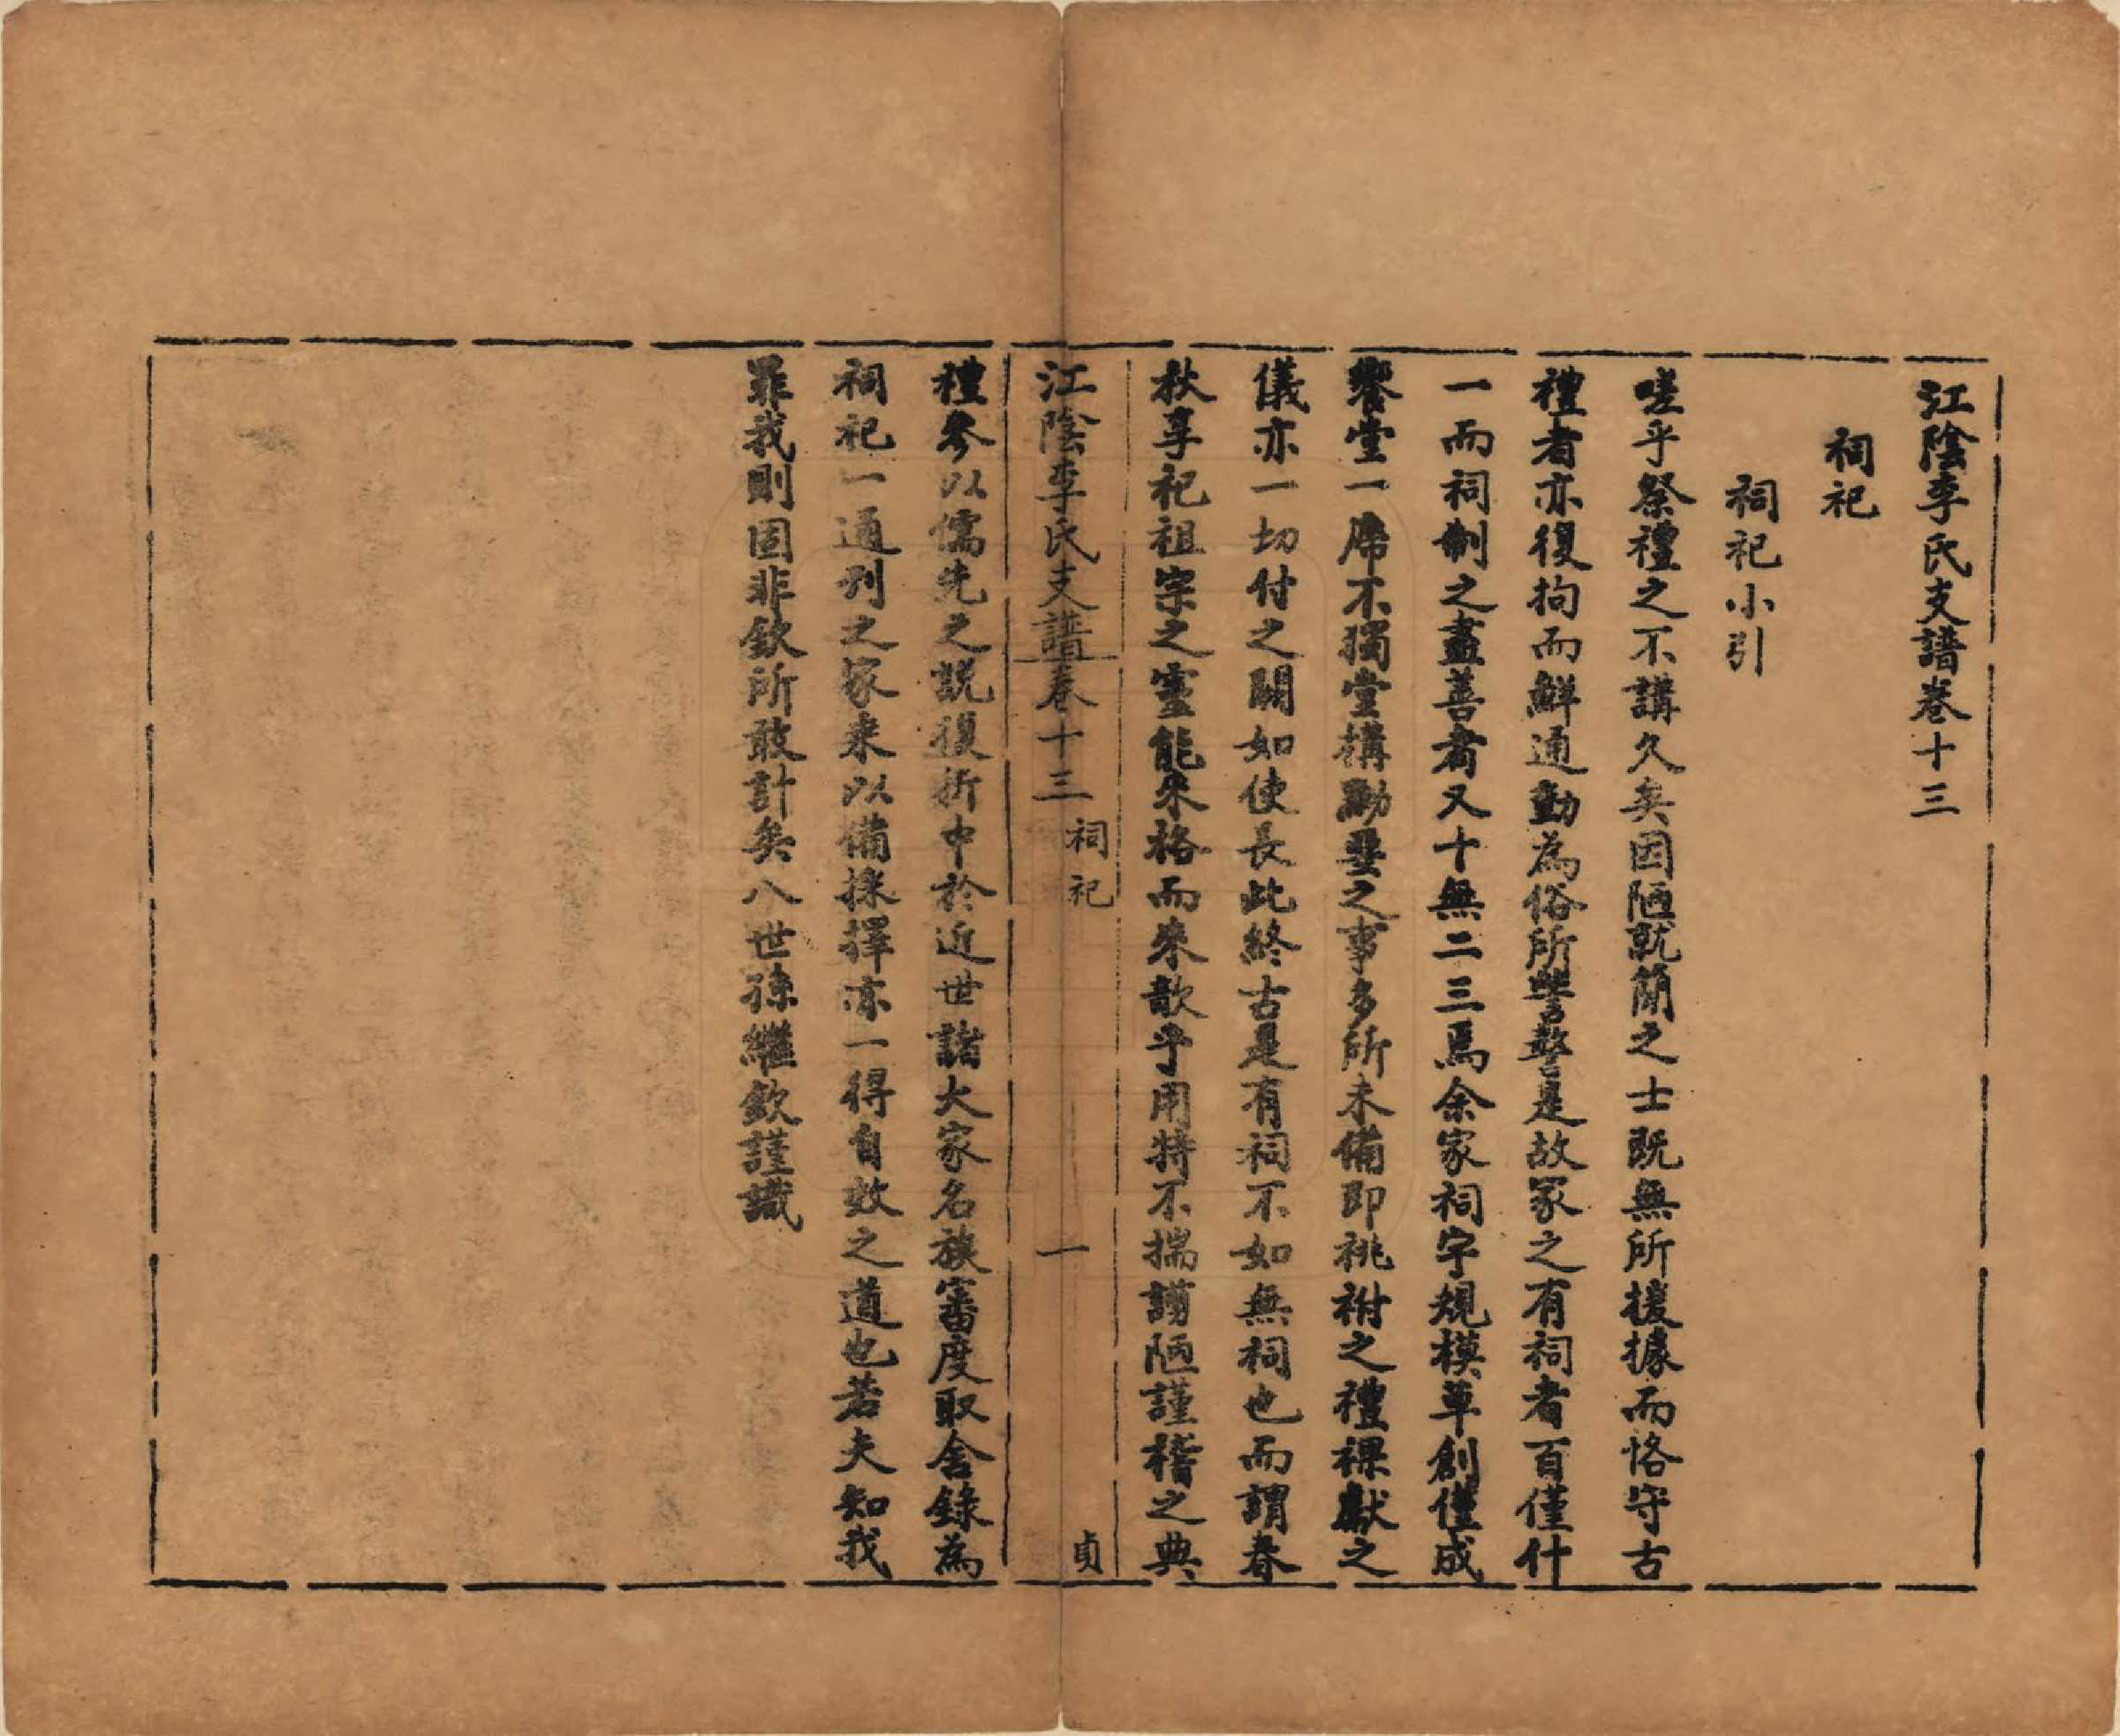 江陰李氏支譜卷十三
祠祀
祠祀小引
嗟乎祭禮之不講久矣因陋就簡之士既無所援據而恪守古
禮者亦復拘而鮮通動為俗所訾警是故冢之有祠者百僅什
一而祠制之盡善者又十無二三焉余家祠宇規模草創僅成
饗堂一席不獨堂搆勤垩之事多所未備即祧祔之禮祼獻之
儀亦一切付之闕如使長此終古是有祠不如無祠也而謂春
秋享祀祖宗之靈能來格而來歆乎用特不揣謭陋謹稽之典
江陰李氏支譜卷十三 祠祀 一 貞
禮參以儒先之說復折中於近世諸大家名族審度取舍錄為
祠祀一通刋之家乘以備採擇亦一得自效之道也若夫知我
罪我則固非欽所敢計矣八世孫繼欽謹識